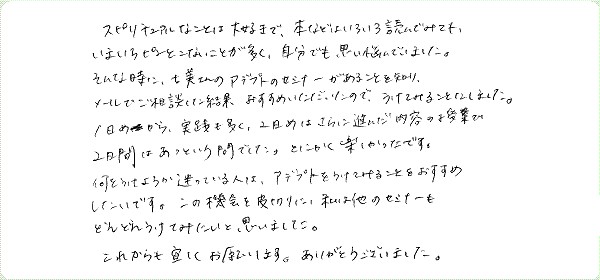 スピリチュアルなことは大好きで、本などはいろいろ読んでみても、
いまいちピンとこないことが多く、自分でも思い悩んでいました。
そんな時に、七美さんのアデプトのセミナーがあることを知り、
メールでご相談した結果おすすめいただいたので、うけてみることにしました。
1日めから、実践も多く、2日めはさらに進んだ内容の授業で
2日間はあっという間でした。とにかく楽しかったです。
何をうけようか迷っている人は、アデプトをうけてみることをおすすめ
したいです。この機会を皮切りに、私は他のセミナーも
どんどんうけてみたいと思いました。
これからも宜しくお願いします。ありがとうございました。